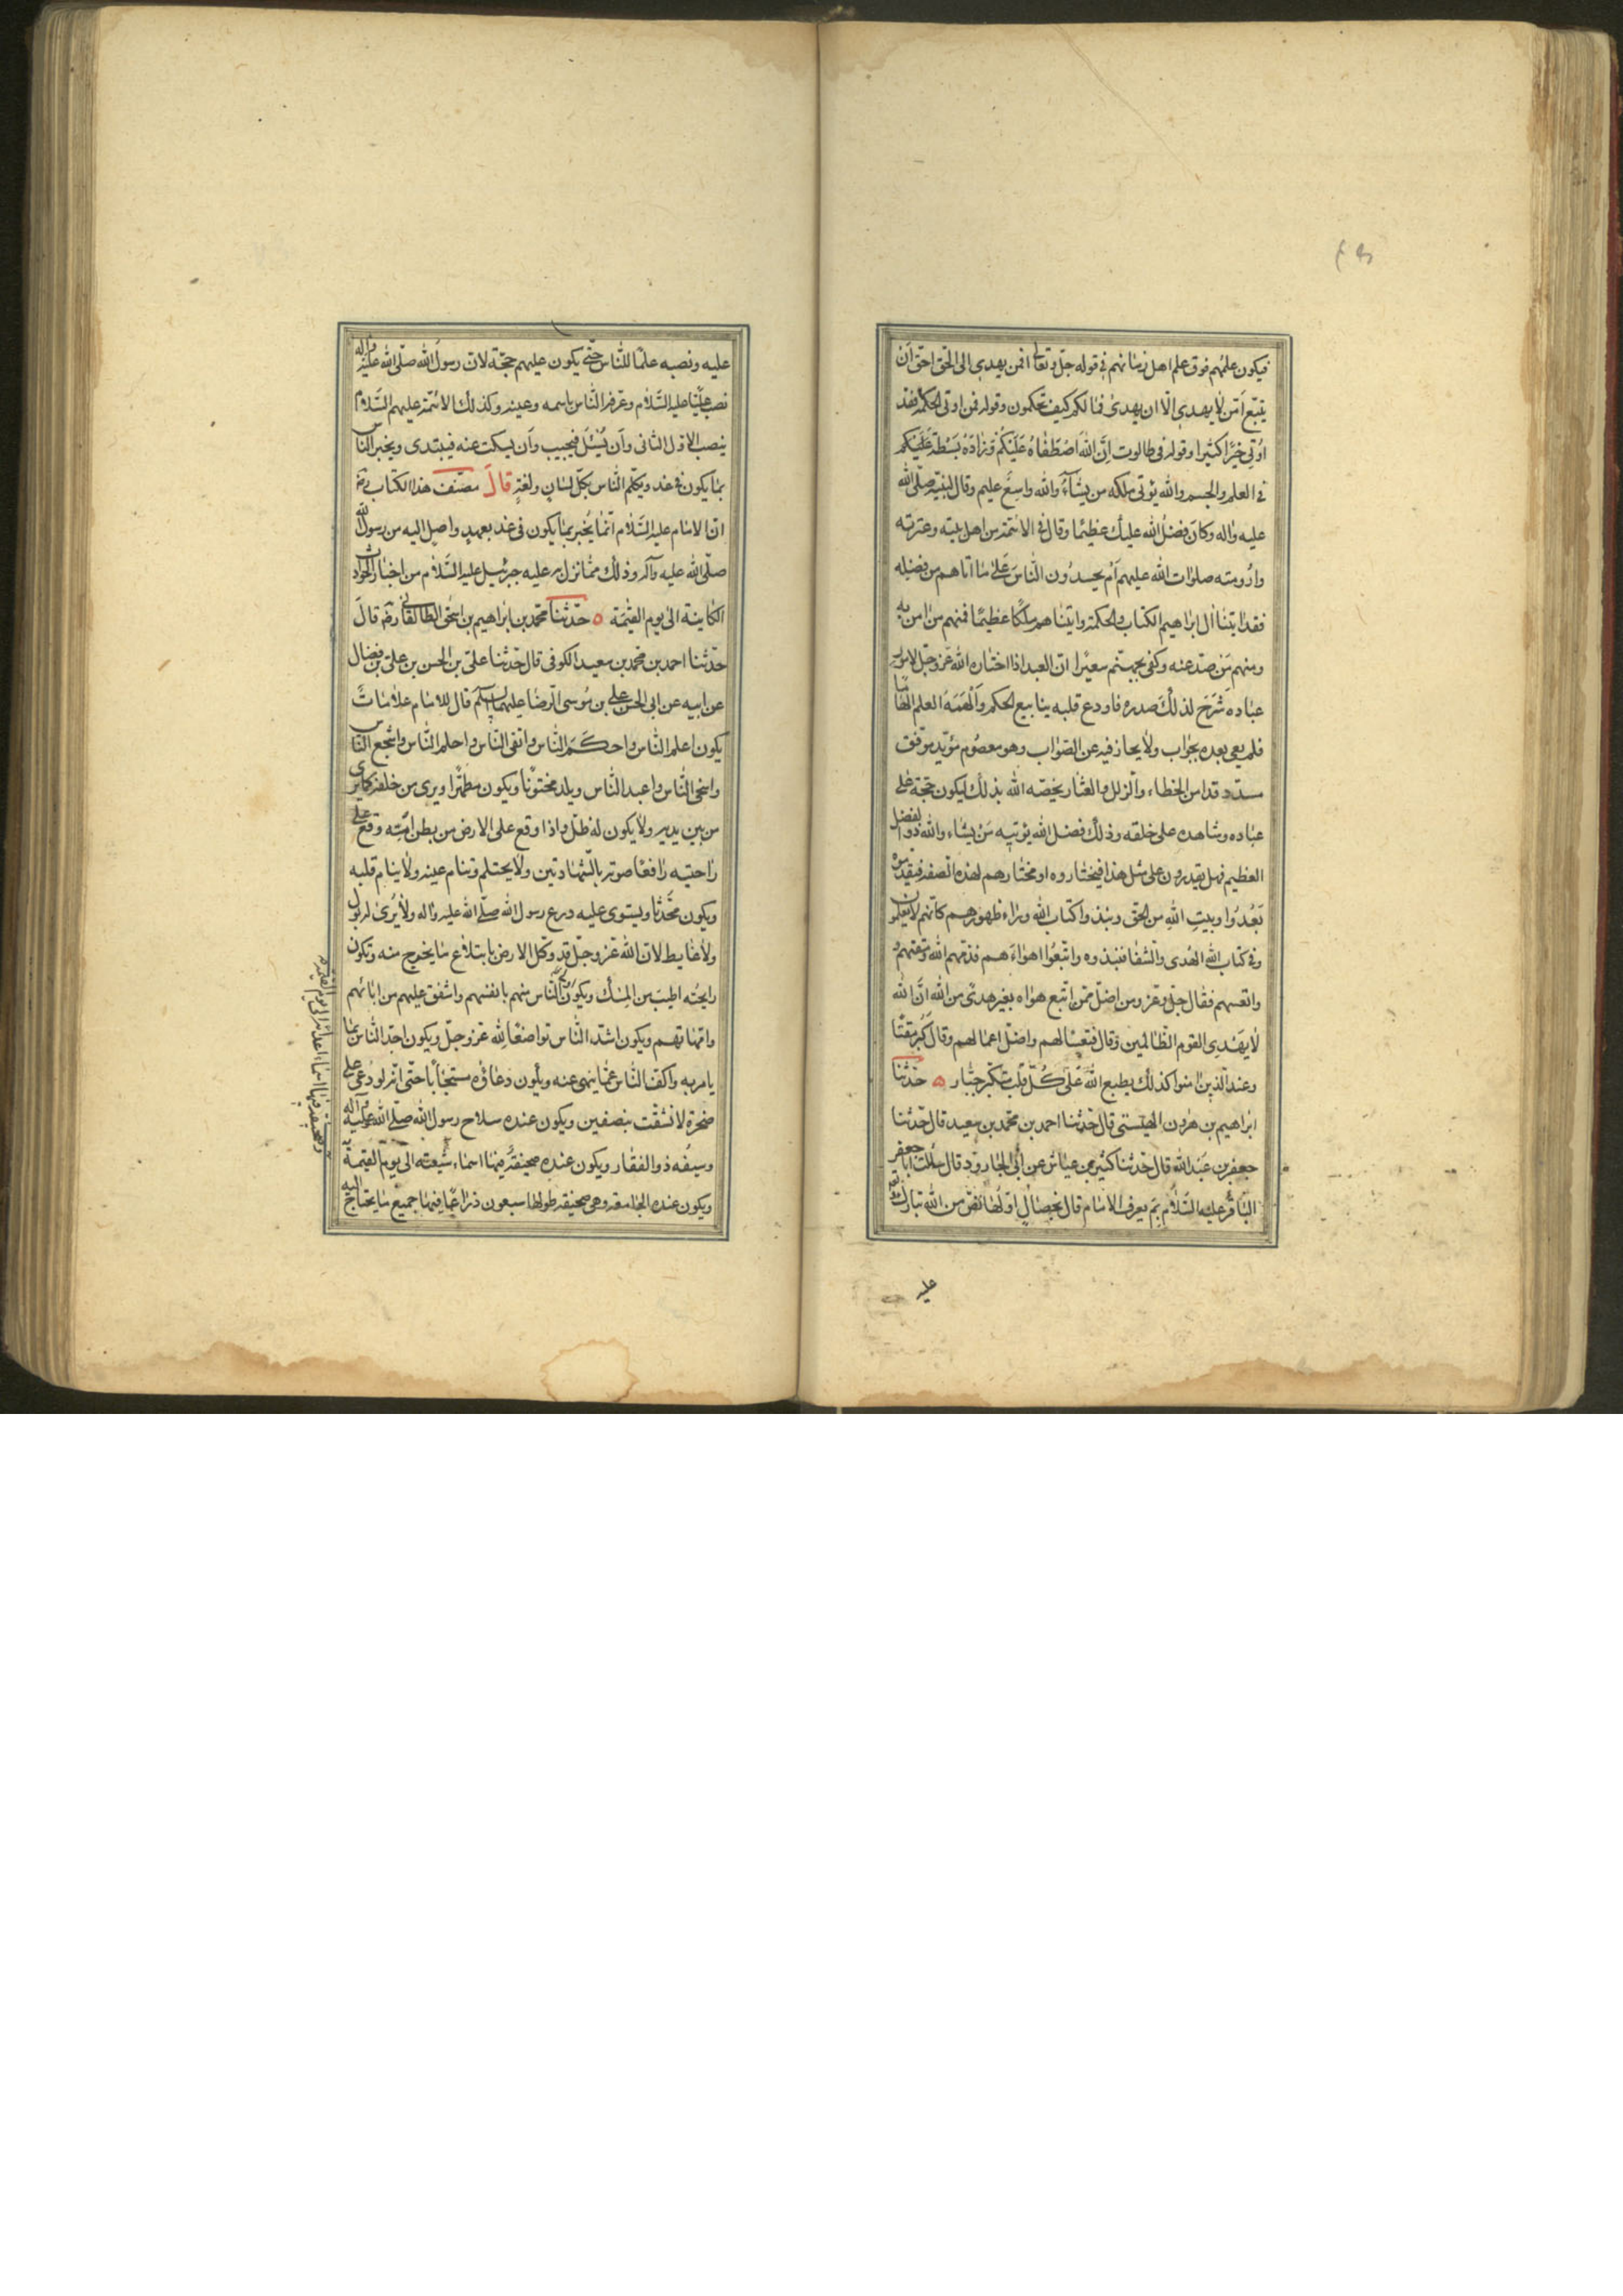 فيكون علمهم فوق علم اهل زمانهم في قوله جلّ وتعالى افمن يهدى الى الحق احقّ اَن
يتّبع اَمّن لا يهدى الّا ان يهدى فما لكم كيف تحكمون وقوله فمن اوتى الحكمة فقد
اُوتى خيرًا كثيرا وقوله فى طالوت اِنَّ اللّٰه اصْطَفاهُ عَلَيْكُمْ وَزٰادَهُ بَسْطَةً عَلَيْكم
فى العلم والجسم واللّٰه يؤتى ملكه من يشآءُ واللّٰه واسِعٌ عليم وقال لنبيّه صلّى اللّٰه
عليه واله وكانَ فضلُ اللّٰه عليك عظيمًا وقال فى الائمّة من اهل بيته وعترته
وذرّيته صلوات اللّٰه عليهم اَم يحسدُون النّاسَ عَلىٰ ما اتاهم من فضله
فقد اتينا اٰل ابراهيم الكتاب والحكمة واتيناهم ملكًا عظيمًا فمنهم من امن به
ومنهم مَن صدّ عنه وكفى بجهنّم سعيرًا انّ العبد اذا اختاره اللّٰه عزّ وجلّ لامور
عباده شَرَحَ لذلك صدره فاودع قلبه ينابيع الحكم وَالْهَمَهُ العلم الهامًا
فلم يعى بعده بجواب ولا يحار فيه عن الصّواب وهو معصوم مؤيّد موفّق
مسدّد قد امن الخطاء والزلل والعثار يخصّه اللّٰه بذلك ليكون حجّته على
عباده وشاهده على خلقه وذلك فضل اللّٰه يؤتيه مَنْ يشاء واللّٰه ذو الفضل
العظيم فهل يقدرون على مثل هذا فيختاروه او مختارهم لهذه الصفة فيقدّموه
تَعُدُوا وبيتِ اللّٰهِ من الحقّ ونبذوا كتاب اللّٰه وراء ظهورهم كانّهم لا يعلمون
وفى كتاب اللّٰه الهُدى والشفا فنبذوه واتّبعُوا اهواءَهم فذمّهم اللّٰه ومقتهم
واتعسهم فقال جلّ وعزّ ومن اضلّ ممّن اتّبع هواه بغير هدىً من اللّٰه انّ اللّٰه
لا يَهْدِى القوم الظّالمين وقال فتعسًا لهم واضلّ اعمالهم وقال كَبُر مقتًا
وعند الّذين امنوا كذلك يطبع اللّٰه عَلىٰ كُلّ قلب متكبّر جبّار ه حدّثنا
ابراهيم بن هٰرون الهيستى قال حدّثنا احمد بن محمّد بن سعيد قال حدّثنا
جعفر بن عَبْد اللّٰه قال حدّثنا كثير بن عيّاش عن ابى الجارود قال سئلت ابا جعفر
الباقر عليه السّلام بِمَ يعرف الامام قال بخصال اوّلها نصّ من اللّٰه تبارك
عليه
عليه ونصبه علمًا للنّاس حتّى يكون عليهم حجّة لانّ رسول اللّٰه صلّى اللّٰه عليه واله
نصب عليًّا عليه السّلام وعرّفه النّاس باسمه وعينه وكذلك الائمّة عليهم السّلام
ينصب الاوّل الثانى وَاَن يُسْئَل فيجيب وَاَن يسكت عنه فيبتدى ويخبر النّاس
بما يكون فى غد ويكلّم النّاس بكلّ لسان ولغة قالَ مصنّف هذا الكتاب رضه
انّ الامام عليه السّلام انّما يُخبر بما يكون فى غد بعهدٍ واصِل اليه من رسول اللّٰه
صلّى اللّٰه عليه وآله وذلك ممّا نزل به عليه جبرئيل عليه السّلام من اخبار الحوادث
الكاينة الى يوم القيٰمة ه حدّثنا محمّد بن ابراهيم بن اسحٰق الطالقانى رضه قالَ
حدّثنا احمد بن محمّد بن سعيد الكوفى قال حدّثنا علىّ بن الحسن بن علىّ بن فضال
عن ابيه عن ابى الحسن على بن مُوسى الرّضا عليهما السلم قال للامام علامات
يكون اعلم النّاس واحكَمَ النّاس واتقى النّاس واحلم النّاس واشجع النّاس
واسخى النّاس واعبد النّاس ويلد مختونًا ويكون مطهّرًا ويرى من خلفه كما يرى
من بين يديه ولا يكون له ظلّ واذا وقع على الارض من بطن امّه وقع على
راحتيه رافعًا صوته بالشّهادتين ولا يحتلم وتنام عينه ولا ينام قلبه
ويكون محَدّثا ويستوى عليه درع رسول اللّٰه صلّى اللّٰه عليه واله ولا يُرىٰ له بول
ولا غايط لانّ اللّٰه عزّ وجلّ قد وكّل الارض بابتلاع ما يخرج منه وتكون
رايحته اطيب من المسك ويكون اولى النّاس منهم بانفسهم واشفق عليهم من ابائهم
وامّهاتهم ويكون اشدّ النّاس تواضعًا للّٰه عزّ وجلّ ويكون اجدّ النّاس بما
يامر به واكفّ النّاس عمّا ينهى عنه ويكون دعاؤه مستجابًا حتّى انّه لو دُعى على
صخرة لانشقّت بنصفين ويكون عنده سلاح رسول اللّٰه صلّى اللّٰه عليه واله
وسيفُه ذو الفقار ويكون عنده صحيفةٌ فيها اسماء شيعته الى يوم القيٰمة
ويكون عنده الجامعة وهى صحيفة طولها سبعون ذراعًا فيها جميع ما يحتاج اليه
وصحيفة فيها اسماء اعدائه الى يوم القيٰمة